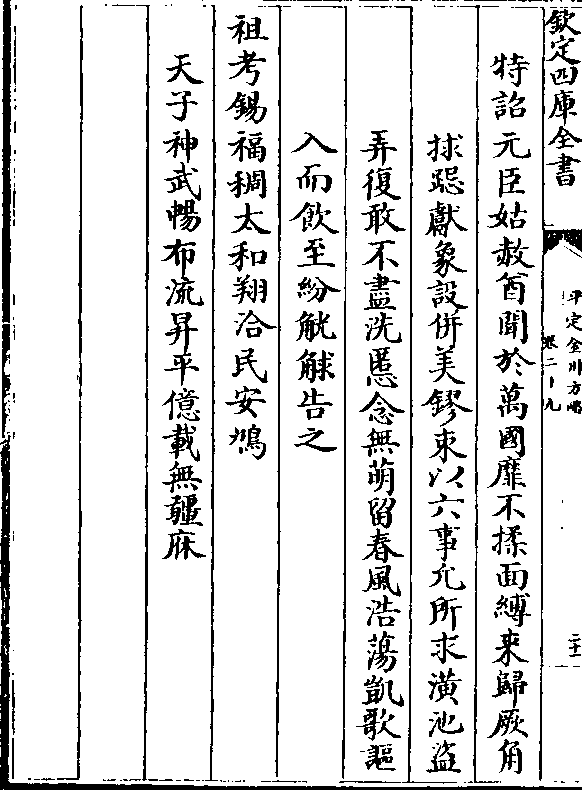 欽定四庫全書
平定金川方略
卷二十九
二十一
特詔元臣姑赦酋聞於萬國靡不揉面縛来歸厥角
捄跽獻象設併美鏐束以六事允所求潢池盜
弄復敢不盡洗慝念無萌留春風浩蕩凱歌謳
入而飲至紛觥觩告之
祖考錫福稠太和翔洽民安鳩
天子神武暢布流昇平億載無疆庥